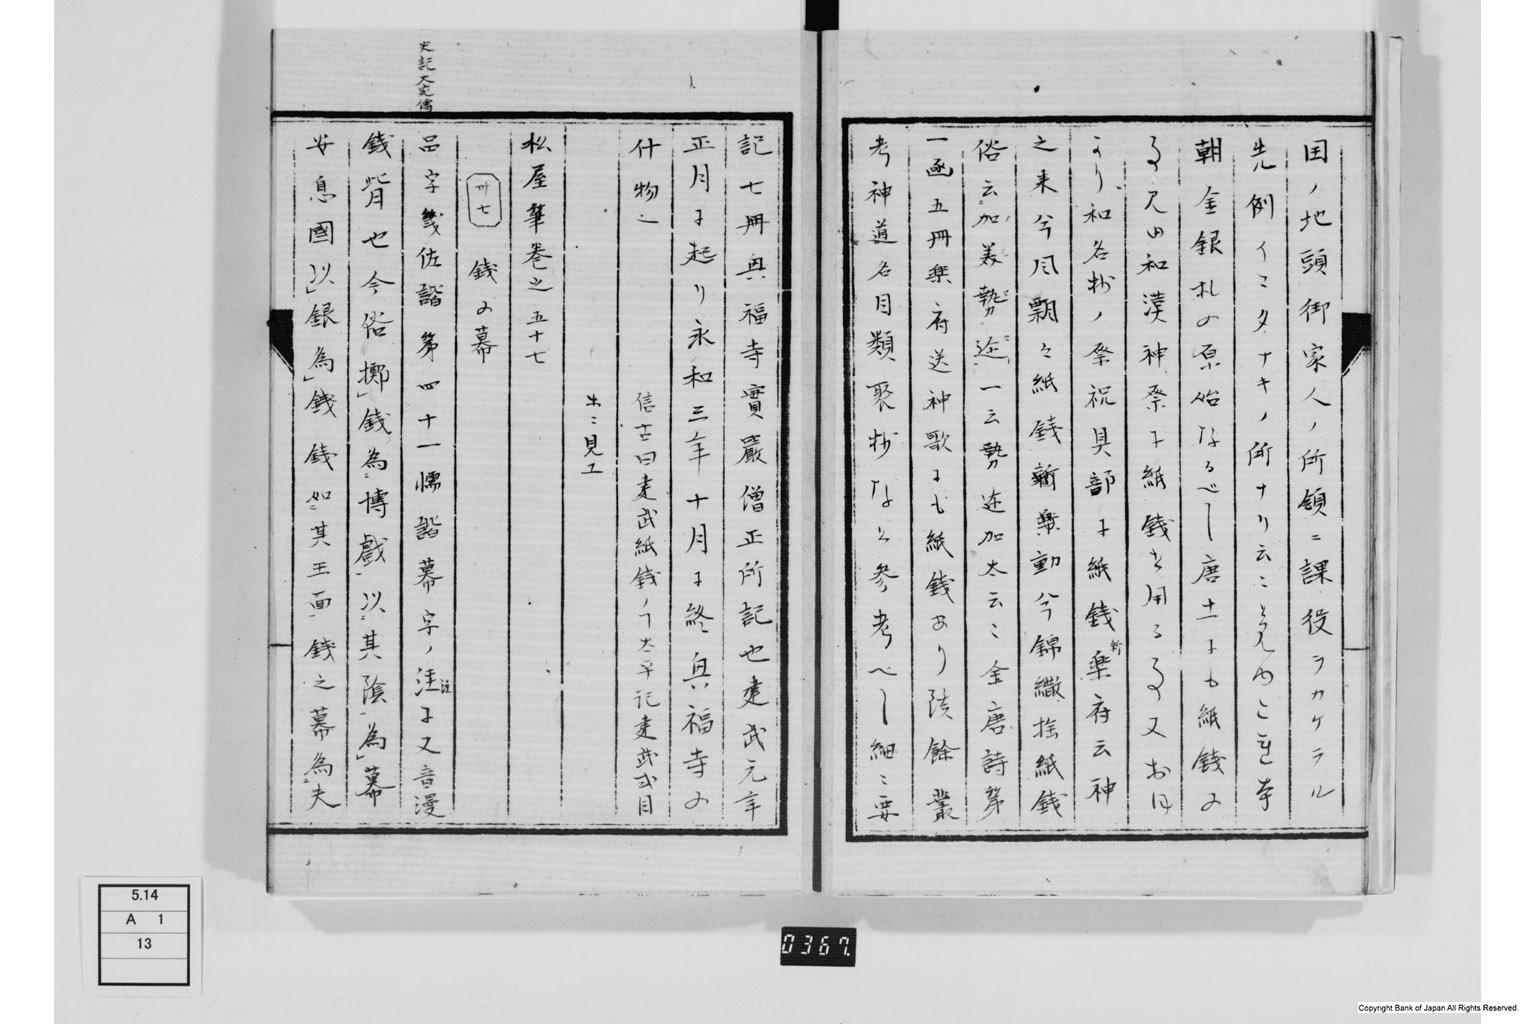 国ノ地頭御家人ノ所領ニ課役ヲカケラル
先例イマタナキノ所ナリ云々
朝金銀札の原始なるべし唐土にも紙銭の
和漢神祭に紙銭を用る事又おほ
より和名抄ノ祭祝具部に紙銭 新樂府云神
之来兮風飄々紙銭新樂動兮錦繖捨紙銭
俗云加美勢迩一云勢迩加太云々全唐詩第
一函五冊樂府送神歌にも紙銭あり陔餘叢
考神道名目類聚抄なと参考べし細々要
記七冊興福寺實嚴僧正所記也建武元年
正月に起り永和三年十月に終興福寺の
什物也
信古曰建武紙銭ノ太平記建武
出ニ見ユ
松屋筆巻之五十七
卅七 銭の幕
史記大宛傳
品字幾佐詣第四十一懦詣幕字ノ注に又音漫
銭背也今俗擲銭為博戯以其陰為幕
安息國以銀為銭銭如其王面銭之幕為夫
0367.
5.14
A 1
13
Copyright Bank of Japan All Rights Reserved.